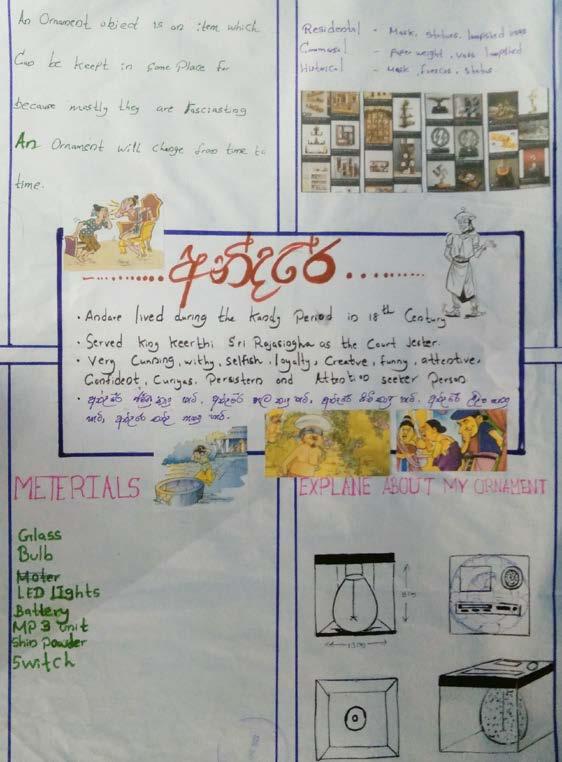 An Ornament object is an item which
Can be keept in some Place for
because mostly they are fasciasting
An Ornament will change from time to
time.
Residental - Mask, statues, lampshed
Commasal - Paper weight, vass lampshed
Historical - Mask, status
අන්දරේ
• Andare lived during the Kandy Period in 18th Century
• Served king keerthi Sri Rajasingha as the Court Jester.
• Very Cunning, withy, selfish, loyalty, Creative, funny, attentive,
Confident, Curiyas, Persistern and Attention seeker Person
METERIALS
Glass
Bulb
Moter
LED LIghts
Battery
MP3 Unit
Shin Powder
Switch
EXPLANE ABOUT MY ORNAMENT